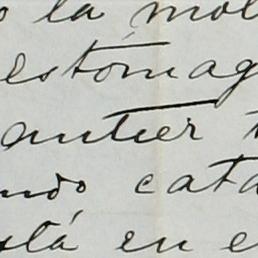 o la mol
estómag
antier t
ndo cata
stá en e